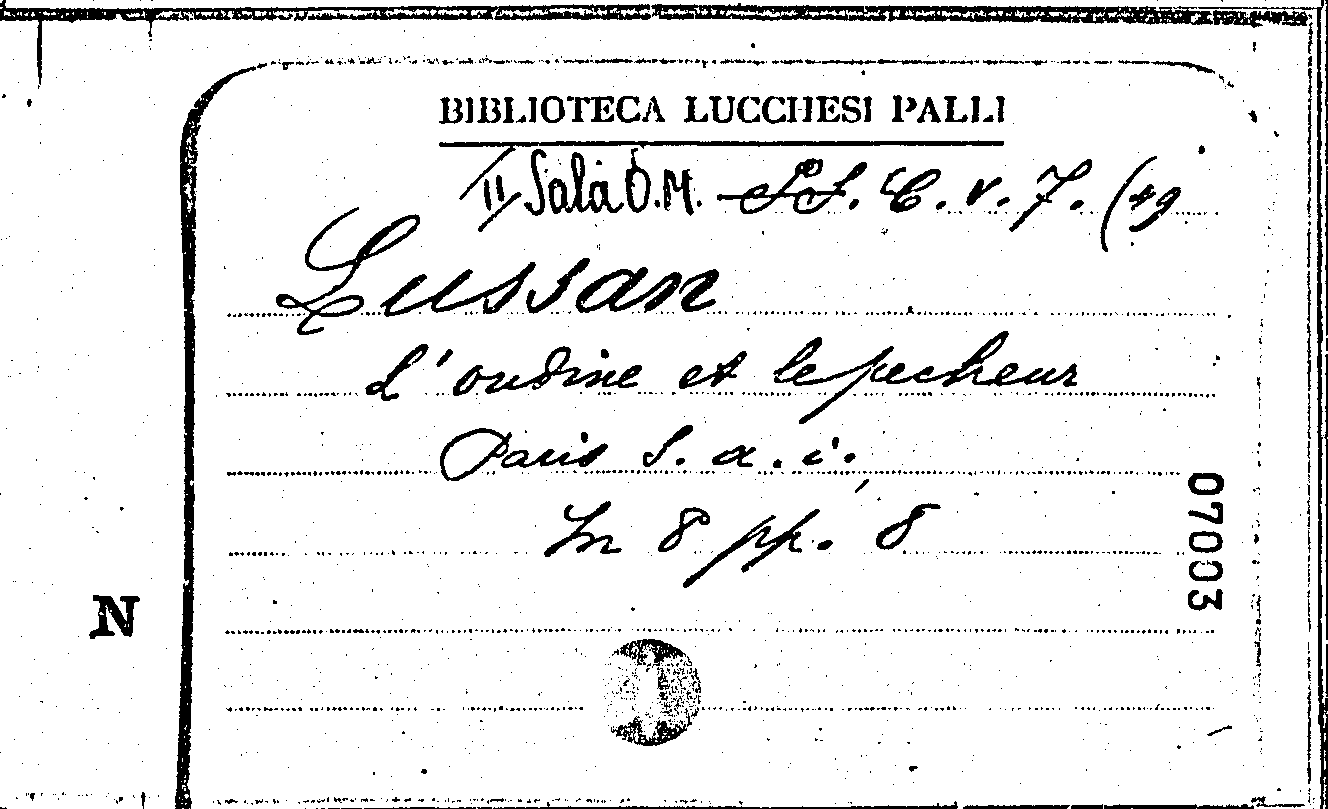 BIBLIOTECA LUCCHESI PALLI
II Sala O.M. C. V. 7. (49
Lussan
L'ondine et le pecheur
Paris S. a. i.
In 8 pp. 8
07003
N